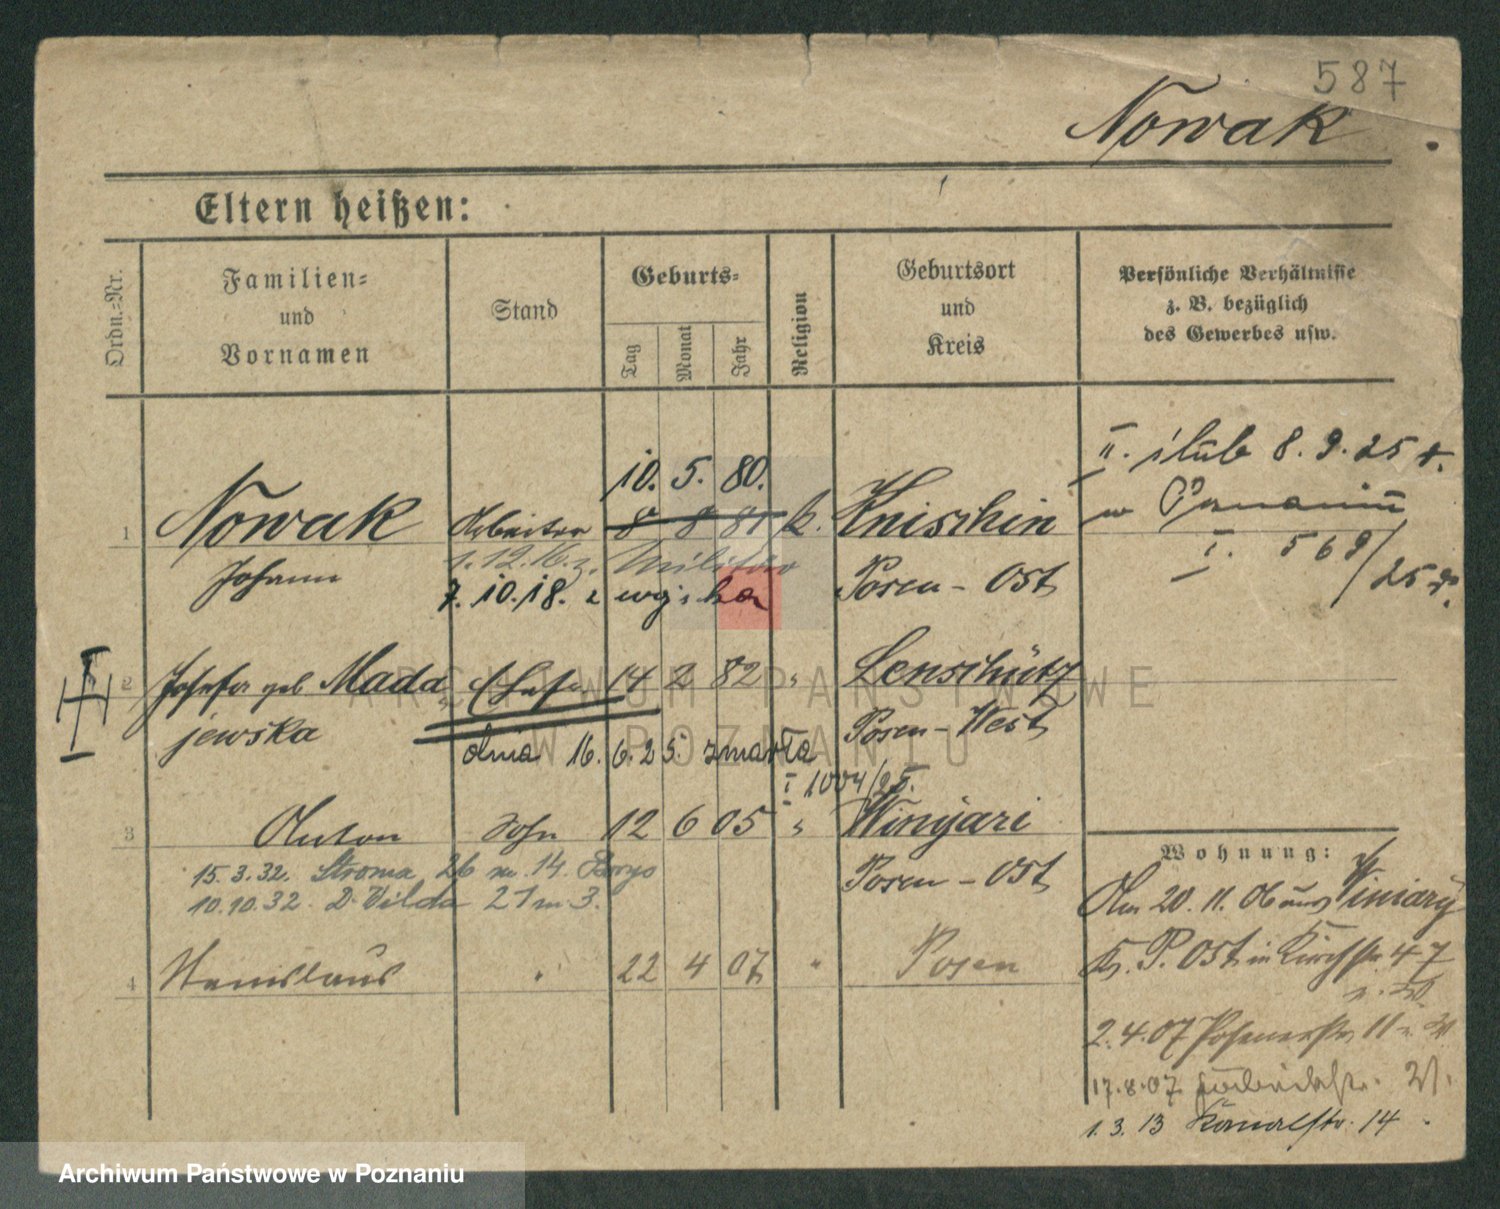 587
Nowak
Eltern heißen:
Ordn.-Nr.
Familien- und Vornamen
Stand
Geburts-
Tag
Monat
Jahr
Religion
Geburtsort und Kreis
Persönliche Verhältnisse z. B. bezüglich des Gewerbes usw.
10. 5. 80.
1 Nowak Arbeiter 8 8 81 k. Knischin
Johann
1.12.16. z. Militär
7.10.18. z wojska
Posen - Ost
II. ślub 8.9.25 r.
w Poznaniu
I. 569/25
2 Josefa geb. Mada
jewska
Ehefr. 14 2 82 " Lenschütz
Posen - West
dnia 16.6.25. zmarła
I 1004/25.
3 Anton Sohn 12 6 05 " Winjari
Posen - Ost
15.3.32. Stroma 26 m. 14.
10.10.32. D. Wilda 21 m 3.
4 Stanislaus " 22 4 07 " Posen
Wohnung:
Am 20.11.06 aus Winiary
Kr. P. Ost in Kirchstr. 47
2.4.07 Posenerstr. 11
17.8.07
1.3.13 Kanalstr. 14.
ARCHIWUM PAŃSTWOWE
W POZNANIU
Archiwum Państwowe w Poznaniu